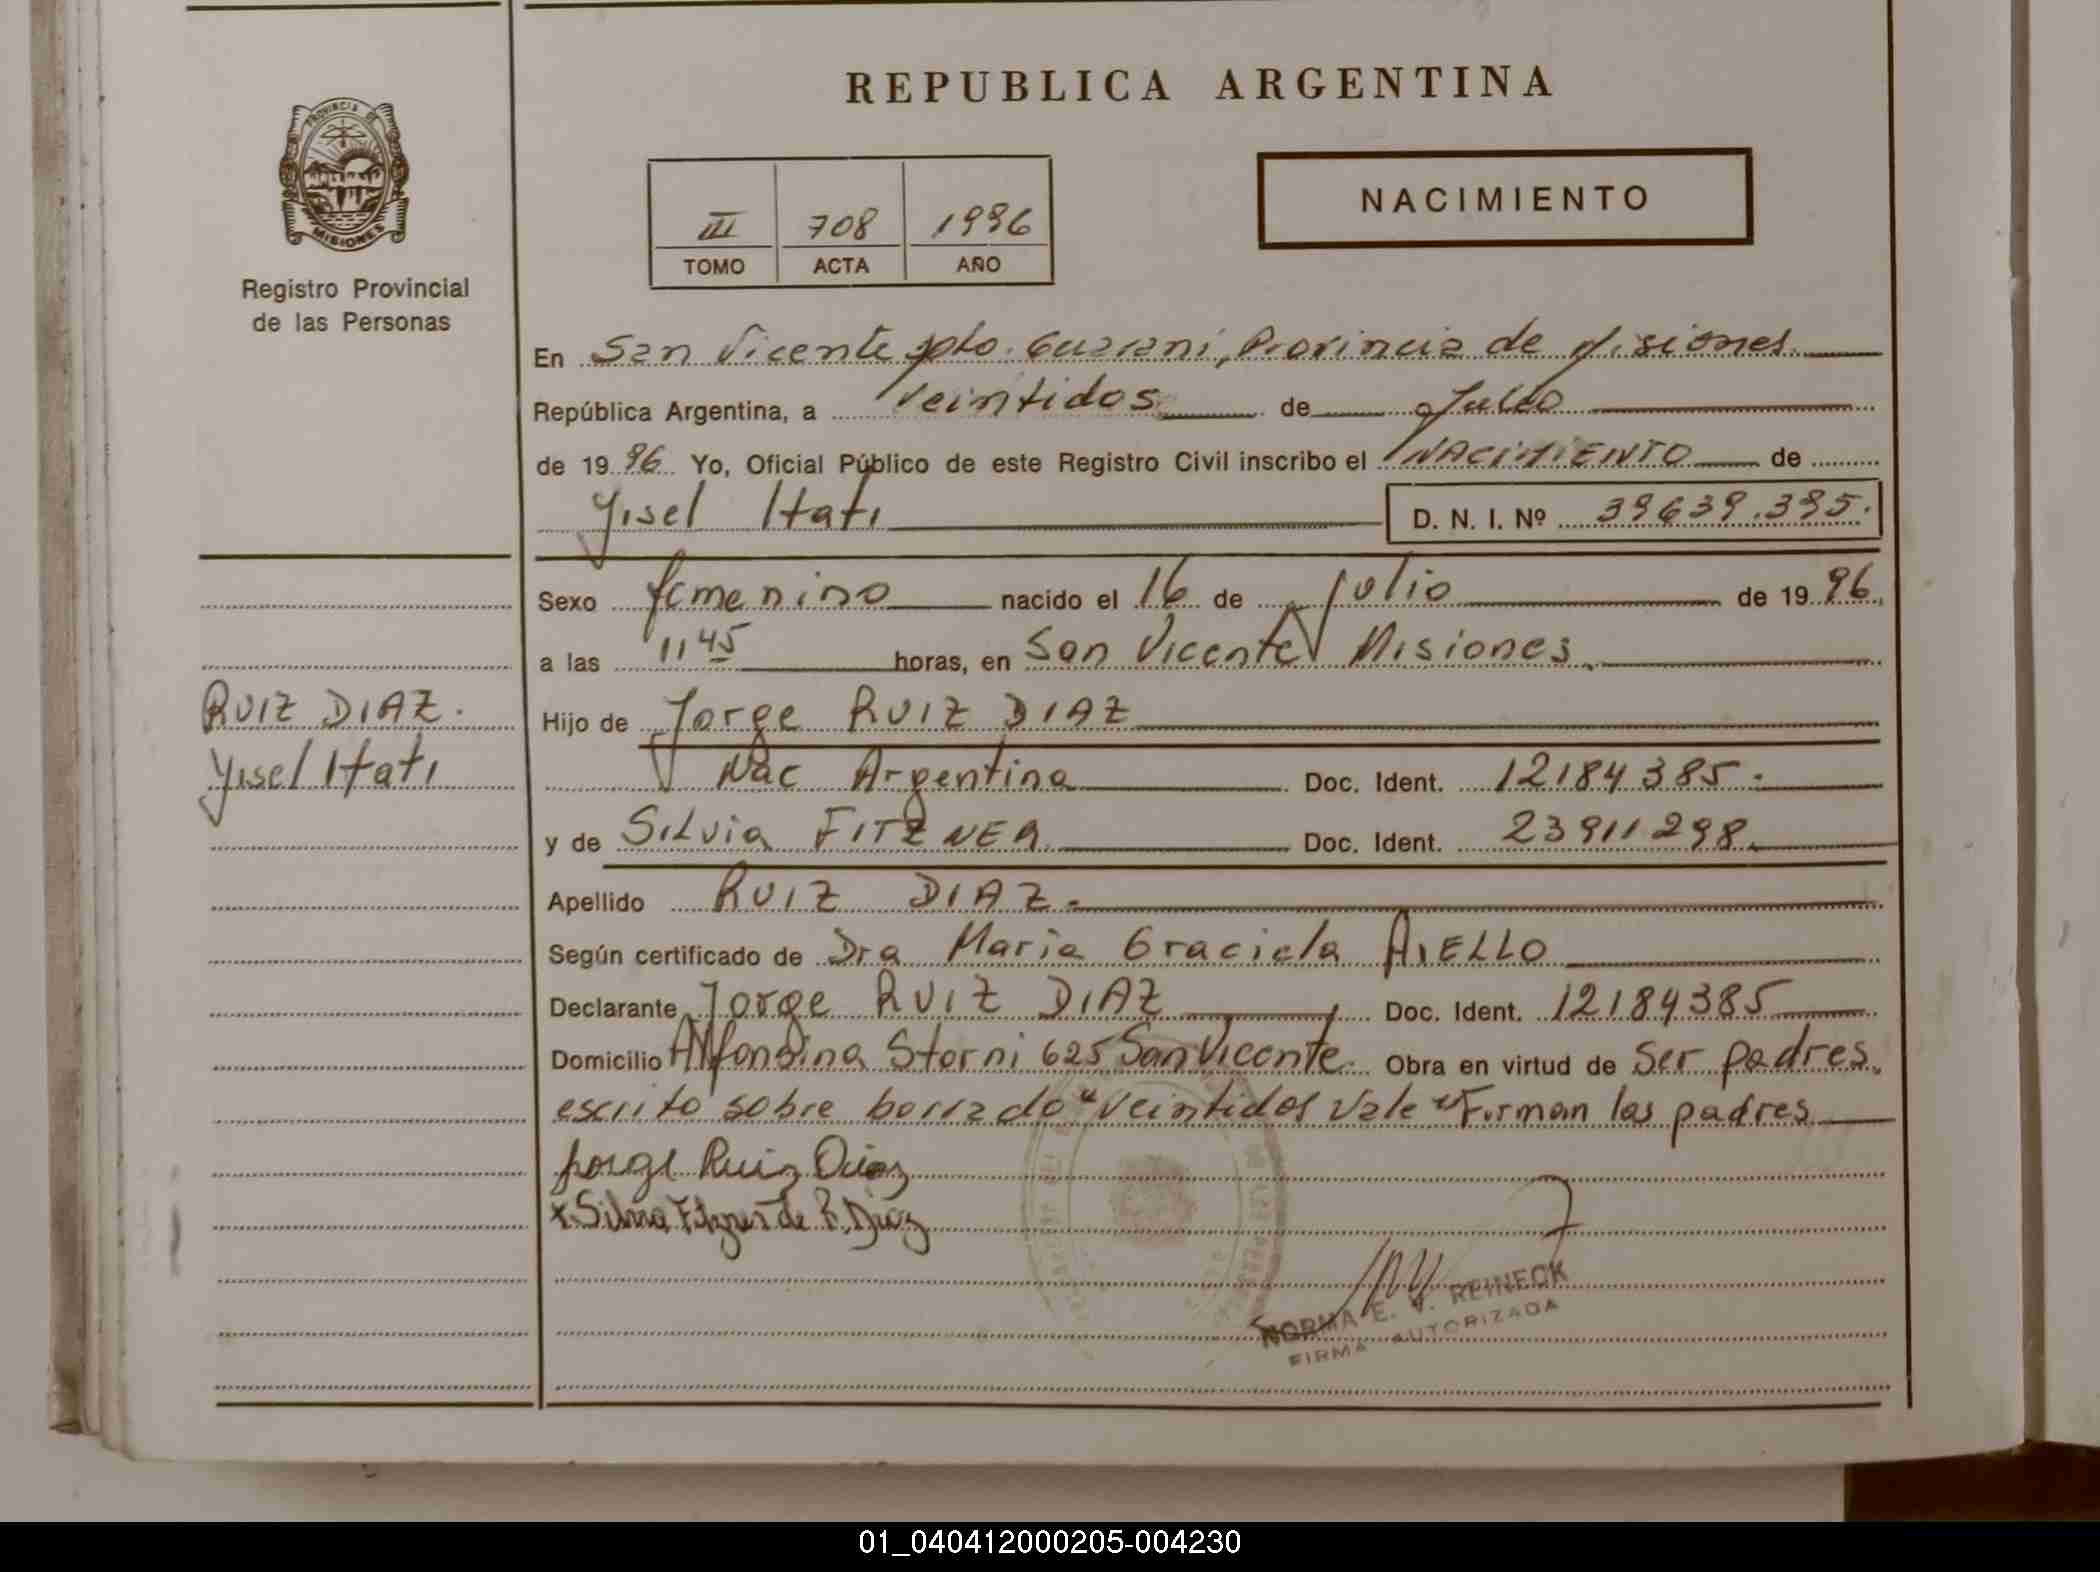 REPUBLICA ARGENTINA
PROVINCIA DE
MISIONES
Registro Provincial
de las Personas
III 708 1996
TOMO ACTA AÑO
NACIMIENTO
En San Vicente Dpto. Guarani, Provincia de Misiones
República Argentina, a veintidos de Julio
de 1996 Yo, Oficial Público de este Registro Civil inscribo el NACIMIENTO de
Yisel Itati D. N. I. Nº 39639.395.
Sexo femenino nacido el 16 de julio de 1996
a las 11 45 horas, en San Vicente Misiones
RUIZ DIAZ.
Yisel Itati
Hijo de Jorge RUIZ DIAZ
Nac Argentina Doc. Ident. 12184385.
y de Silvia FITZNER Doc. Ident. 23911298.
Apellido RUIZ DIAZ.
Según certificado de Dra Maria Graciela AIELLO
Declarante Jorge RUIZ DIAZ Doc. Ident. 12184385
Domicilio Alfonsina Storni 625 San Vicente. Obra en virtud de Ser padres.
escrito sobre borrado "veintidos vale" Firman los padres
Jorge Ruiz Diaz
x Silvia de R. Diaz
NORMA E. V. REINECK
FIRMA AUTORIZADA
01_040412000205-004230